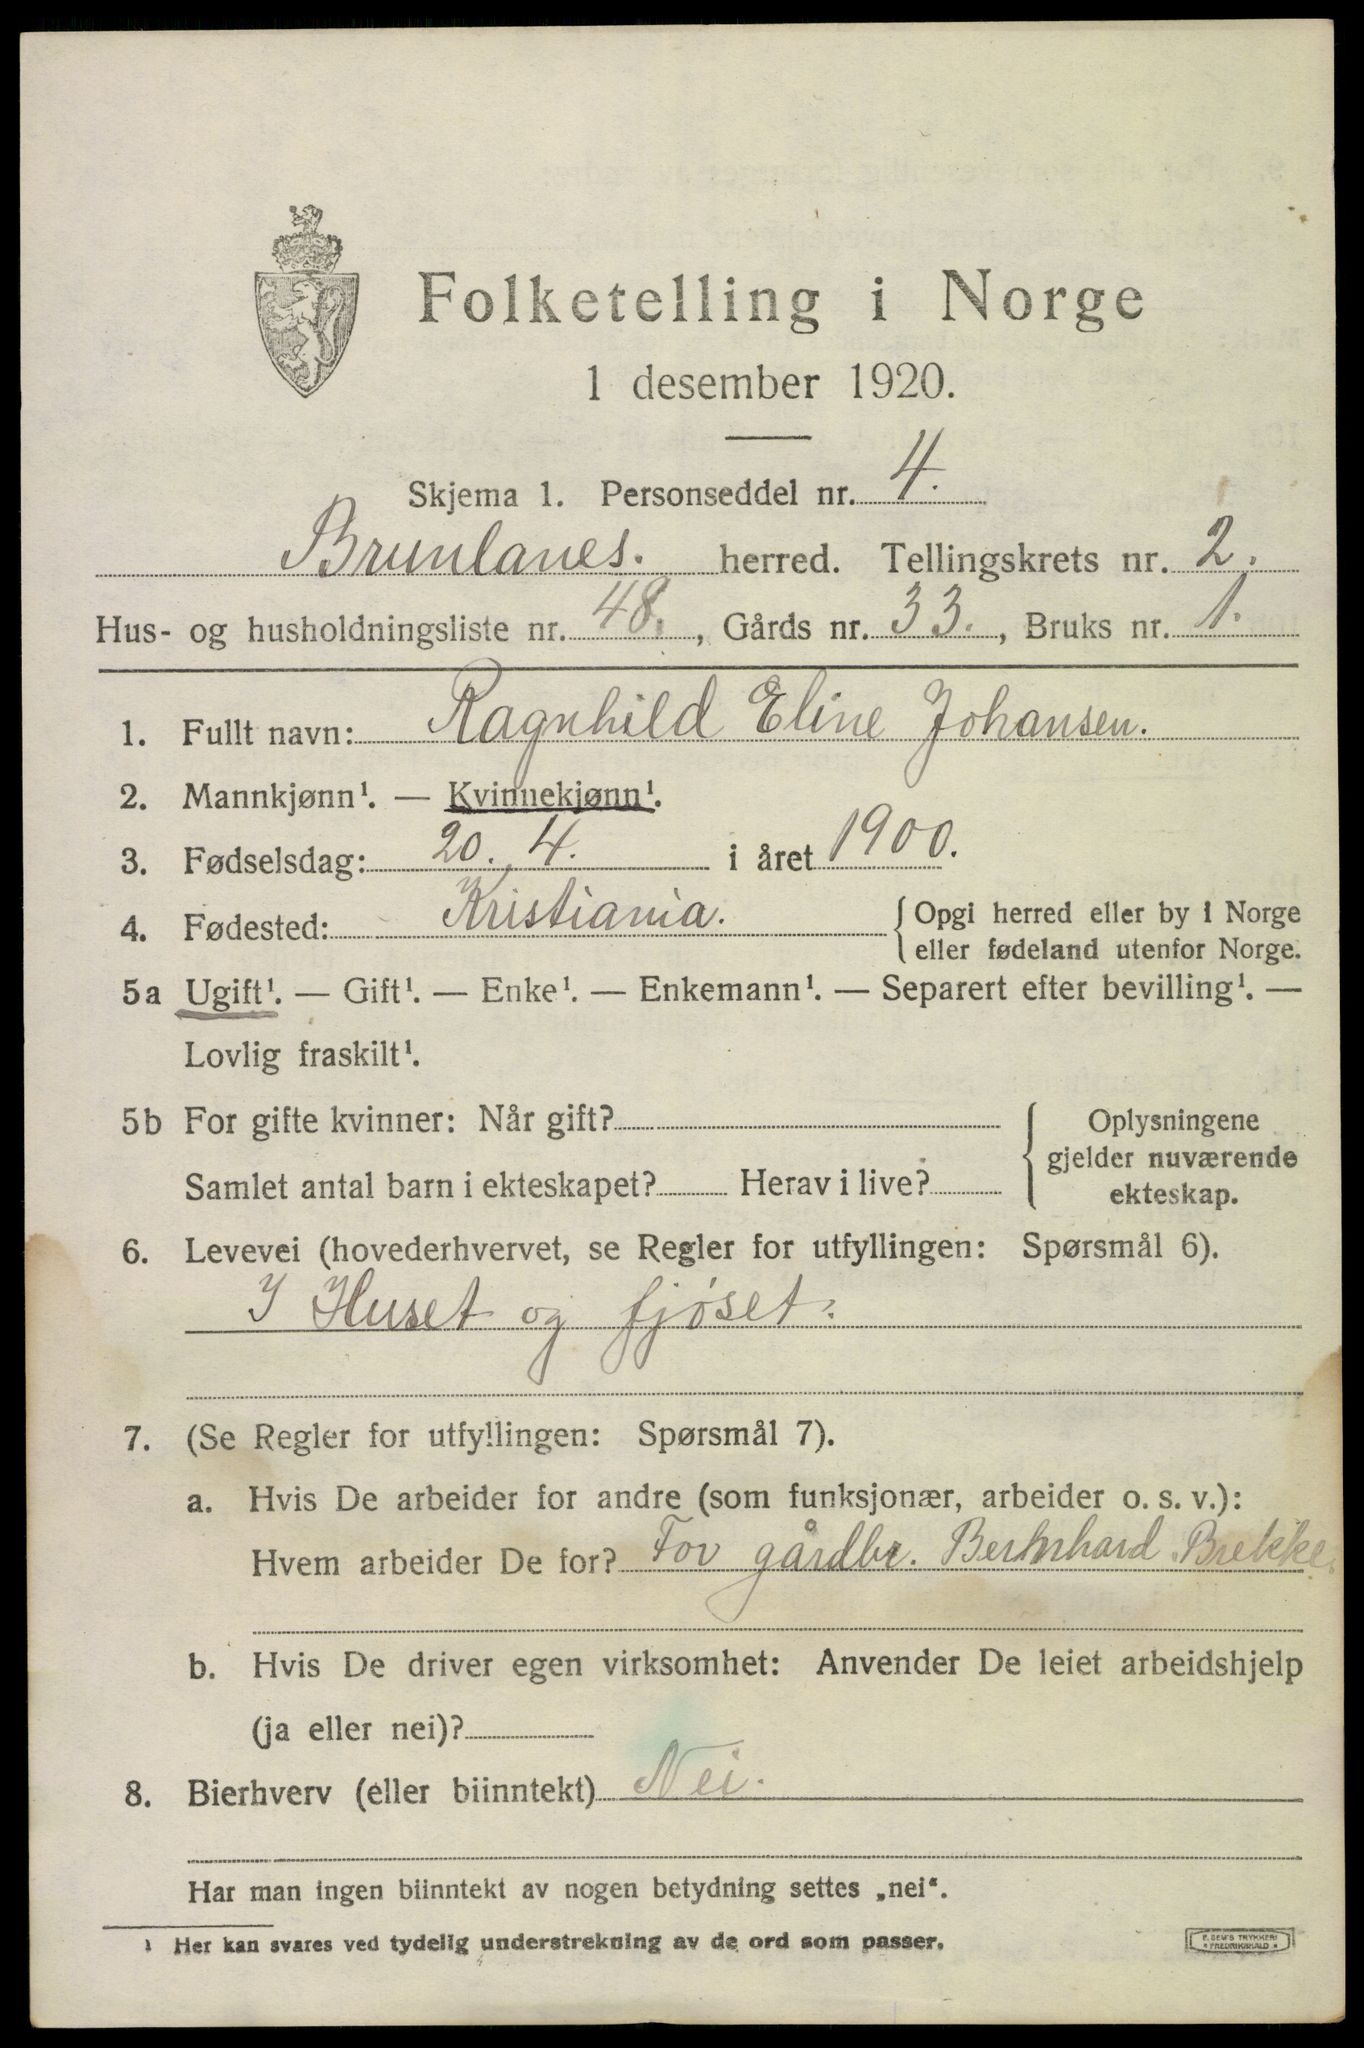 Folketelling i Norge
1 desember 1920.
Skjema 1. Personseddel nr. 4.
Brunlanes. herred. Tellingskrets nr. 2.
Hus- og husholdningsliste nr. 48., Gårds nr. 33., Bruks nr. 1.
1. Fullt navn: Ragnhild Eline Johansen.
2. Mannkjønn¹. — Kvinnekjønn¹.
3. Fødselsdag: 20. 4. i året 1900.
4. Fødested: Kristiania. { Opgi herred eller by i Norge
eller fødeland utenfor Norge.
5a Ugift¹. — Gift¹. — Enke¹. — Enkemann¹. — Separert efter bevilling¹. —
Lovlig fraskilt¹.
5b For gifte kvinner: Når gift? { Oplysningene
gjelder nuværende
Samlet antal barn i ekteskapet? Herav i live?
ekteskap.
6. Levevei (hovederhvervet, se Regler for utfyllingen: Spørsmål 6).
I Huset og fjøset.
7. (Se Regler for utfyllingen: Spørsmål 7).
a. Hvis De arbeider for andre (som funksjonær, arbeider o. s. v.):
Hvem arbeider De for? For gårdbr. Bernhard Brekke.
b. Hvis De driver egen virksomhet: Anvender De leiet arbeidshjelp
(ja eller nei)?
8. Bierhverv (eller biinntekt) Nei.
Har man ingen biinntekt av nogen betydning settes „nei“.
¹ Her kan svares ved tydelig understrekning av de ord som passer.
E. SEM'S TRYKKERI
FREDRIKSHALD